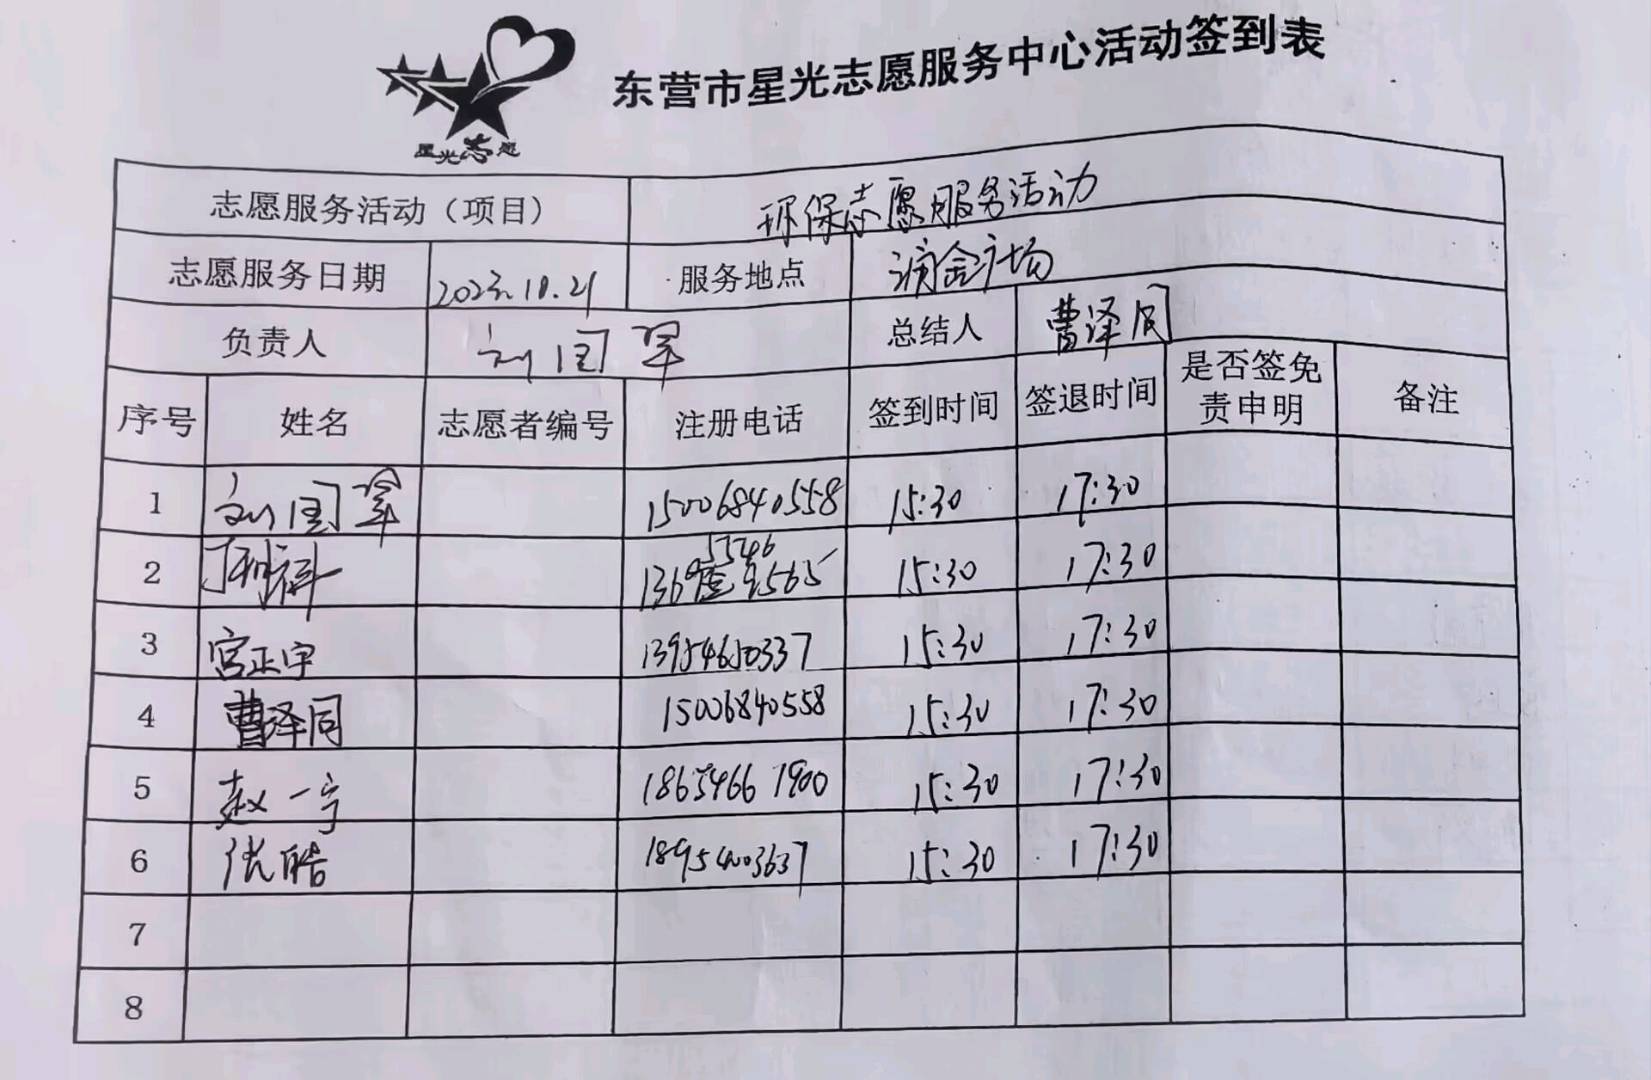 东营市星光志愿服务中心活动签到表
星光志愿
志愿服务活动（项目） 环保志愿服务活动
志愿服务日期 2023.10.21 服务地点 金广场
负责人 刘国军 总结人 曹泽同
序号 姓名 志愿者编号 注册电话 签到时间 签退时间 是否签免责申明 备注
1 刘国军 15006840558 15:30 17:30
2 15:30 17:30
3 宫正宇 13954610337 15:30 17:30
4 曹泽同 15006840558 15:30 17:30
5 赵一宁 18654661900 15:30 17:30
6 张皓 18954003637 15:30 17:30
7
8